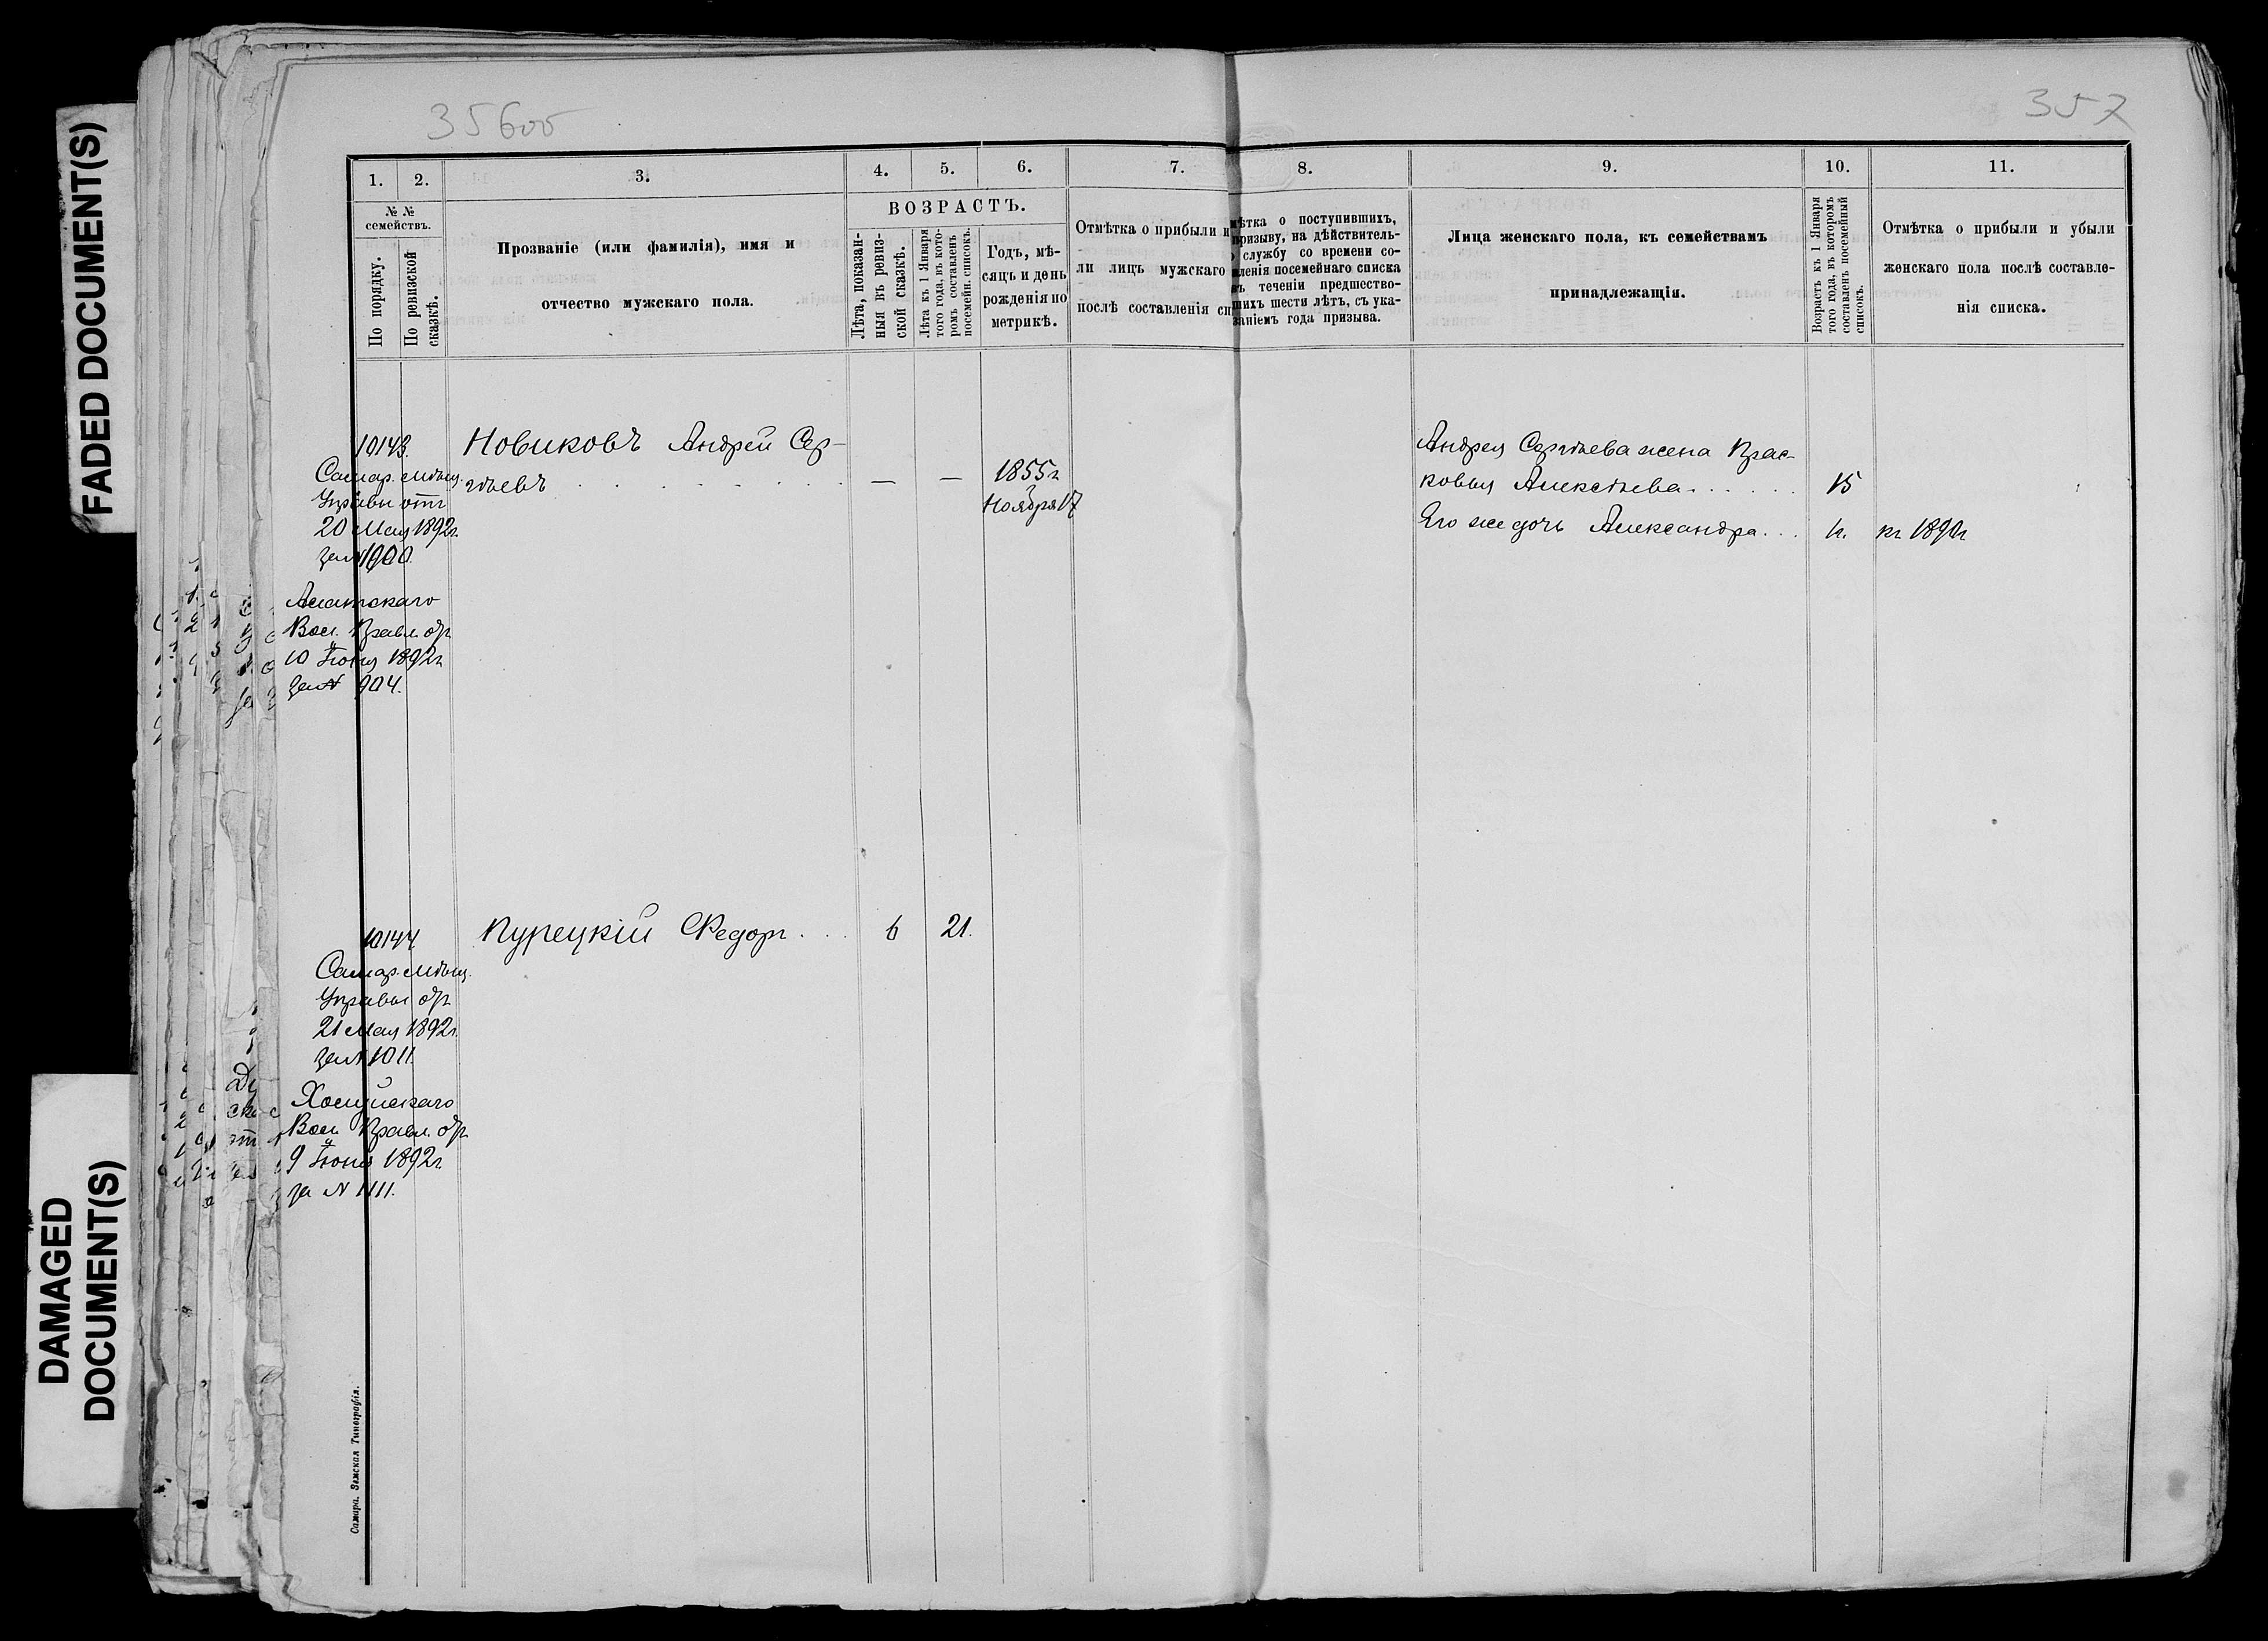 FADED DOCUMENT(S)
DAMAGED
DOCUMENT(S)
356об
357
1. 2. 3. 4. 5. 6. 7. 8. 9. 10. 11.
№ №
семействъ.
По порядку.
По ревизской
сказкѣ.
Прозваніе (или фамилія), имя и
отчество мужскаго пола.
ВОЗРАСТЪ.
Лѣта, показан-
ныя въ ревиз-
ской сказкѣ.
Лѣта къ 1 Января
того года, въ кото-
ромъ составленъ
посемейн. списокъ.
Годъ, мѣ-
сяцъ и день
рожденія по
метрикѣ.
Отмѣтка о прибыли и
ли лицъ мужскаго
послѣ составленія сп
мѣтка о поступившихъ,
призыву, на дѣйствитель-
службу со времени со-
вленія посемейнаго списка
въ теченіи предшество-
шихъ шести лѣтъ, съ ука-
заніемъ года призыва.
Лица женскаго пола, къ семействамъ
принадлежащія.
Возрастъ къ 1 Января
того года, въ которомъ
составленъ посемейный
списокъ.
Отмѣтка о прибыли и убыли
женскаго пола послѣ составле-
нія списка.
10143.
Самар. Мѣщ.
Управы отъ
20 Мая 1892г.
за № 1000.
Вол. Правл. отъ
10 Іюня 1892г.
за № 904.
Новиковъ Андрей Сер-
гѣевъ . . . . . . . — —
1855г.
Ноября 17
Андрея Сергѣева жена Прас-
ковья Алексѣева . . . . . 15
Его же дочь Александра . . .
10144.
Самар. Мѣщ.
Управы отъ
21 Мая 1892г.
за № 1011.
Вол. Правл. отъ
9 Іюня 1892г.
за № 1111.
Курецкій Ѳедоръ . . . 6 21.
Самара. Земская Типографія.